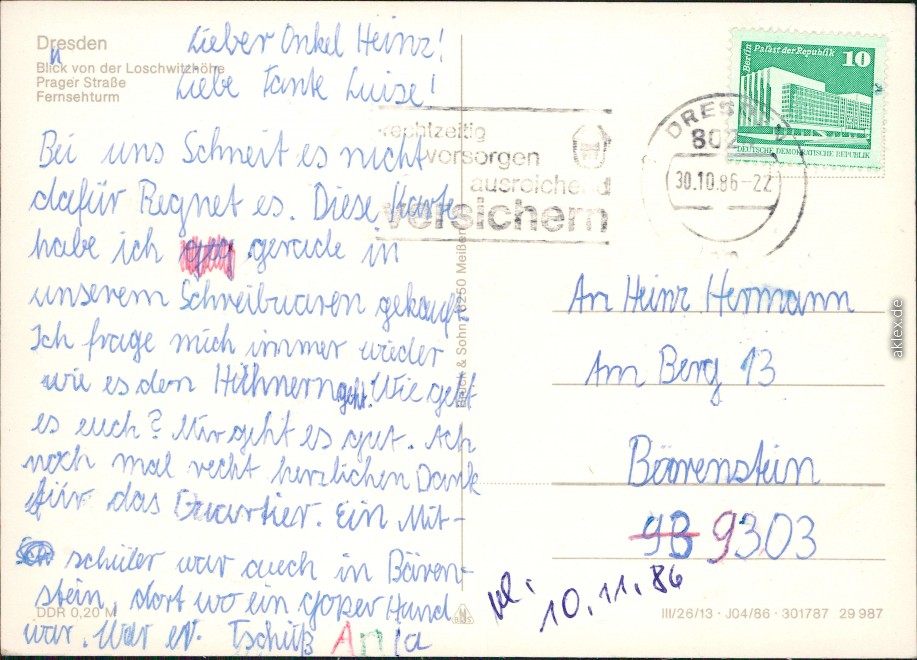 Dresden
Blick von der Loschwitzhöhe
Prager Straße
Fernsehturm
Lieber Onkel Heinz!
Liebe Tante Luise!
Bei uns Schneit es nicht
dafür Regnet es. Diese Karte
habe ich gerade in
unserem Schreibwaren gekauft
Ich frage mich immer wieder
wie es den Hühnern geht. Wie geht
es euch? Mir geht es gut. Ach
noch mal recht herzlichen Dank
für das Quartier. Ein Mit-
schüler war auch in Bären-
stein, dort wo ein goßer Hund
war. War er. Tschüß Anja
DDR 0,20 M
Bruck & Sohn 8250 Meißen
rechtzeitig
vorsorgen
ausreichend
versichern
DRESDEN
802
30.10.86-22
Berlin Palast der Republik
10
DEUTSCHE DEMOKRATISCHE REPUBLIK
An Heinz Hermann
Am Berg 13
Bärenstein
93 9303
10.11.86
III/26/13 · J04/86 · 301787 29 987
aklex.de